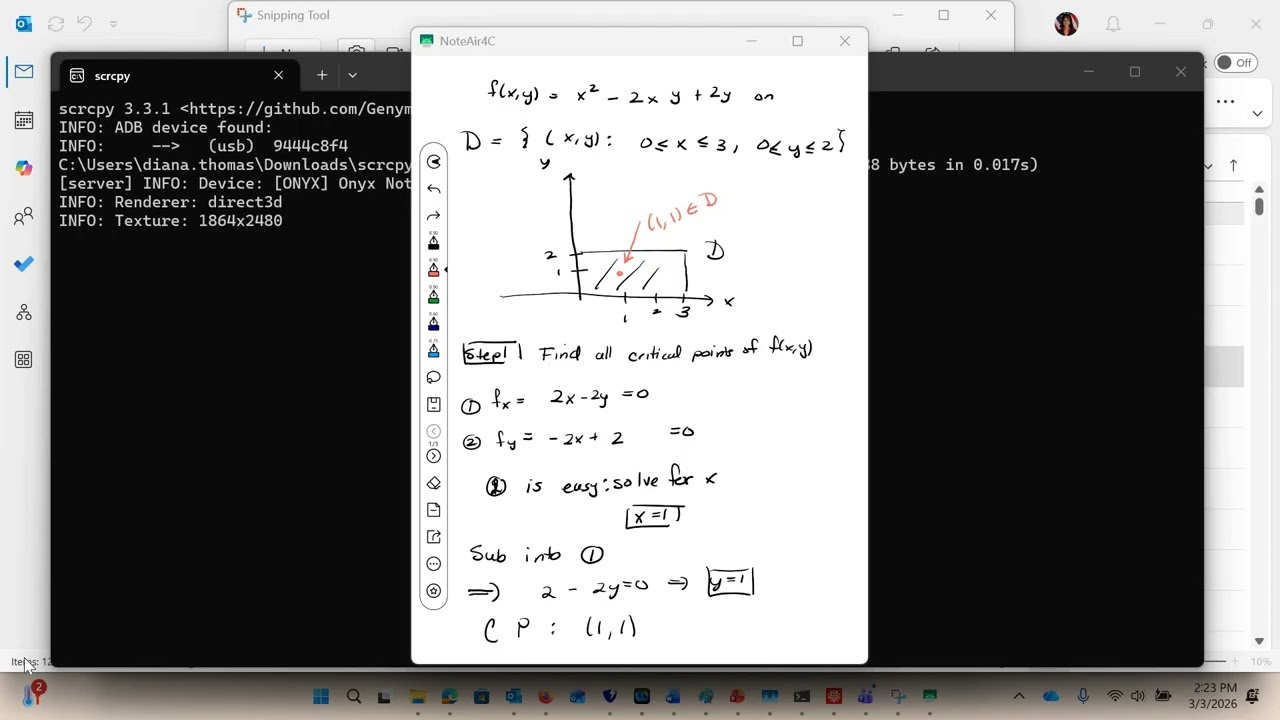 Snipping Tool
NoteAir4C
Off
scrcpy
scrcpy 3.3.1 <https://github.com/Genym
INFO: ADB device found:
INFO:     -->   (usb)  9444c8f4
C:\Users\diana.thomas\Downloads\scrcpy
88 bytes in 0.017s)
[server] INFO: Device: [ONYX] Onyx Not
INFO: Renderer: direct3d
INFO: Texture: 1864x2480
f(x,y) = x² - 2xy + 2y on
D = { (x,y): 0 ≤ x ≤ 3, 0 ≤ y ≤ 2}
y
(1,1) ∈ D
2
D
1
x
1 2 3
Step 1 Find all critical points of f(x,y)
① fx = 2x - 2y = 0
② fy = -2x + 2 = 0
② is easy: solve for x
x = 1
Sub into ①
⟹ 2 - 2y = 0 ⟹ y = 1
CP : (1,1)
1/1
Items: 12
10%
2
2:23 PM
3/3/2026